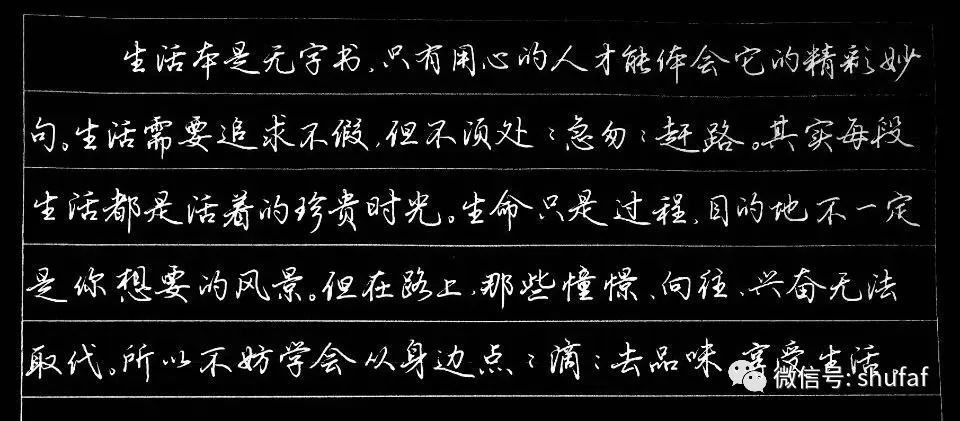 生活本是无字书,只有用心的人才能体会它的精彩妙
句。生活需要追求不假,但不须处々忽勿々赶路。其实每段
生活都是活着的珍贵时光。生命只是过程,目的地不一定
是你想要的风景。但在路上,那些憧憬、向往、兴奋无法
取代。所以不妨学会从身边点々滴々去品味 享受生活
微信号: shufaf